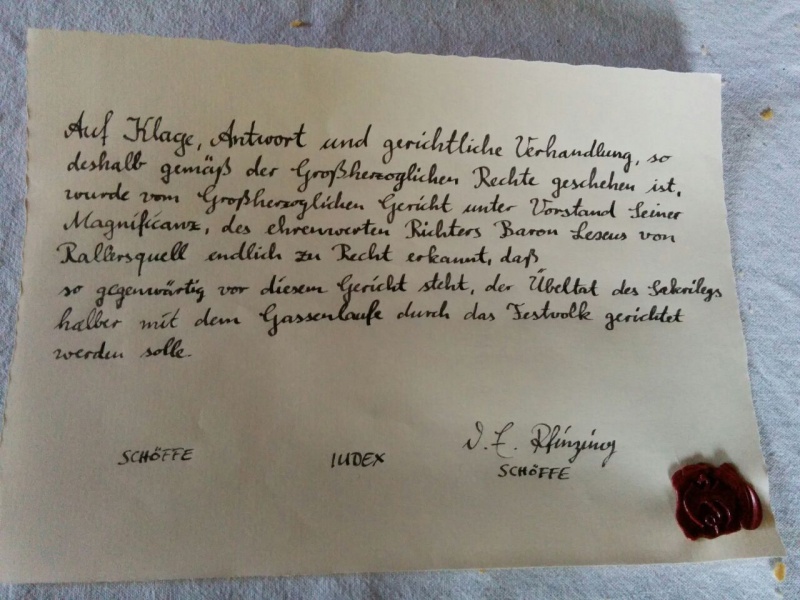 Auf Klage, Antwort und gerichtliche Verhandlung, so
deshalb gemäß der Großherzoglichen Rechte geschehen ist,
wurde vom Großherzoglichen Gericht unter Vorstand Seiner
Magnificanz, des ehrenwerten Richters Baron Lexus von
Rallersquell endlich zu Recht erkannt, daß
so gegenwärtig vor diesem Gericht steht, der Übeltat des Sakrilegs
halber mit dem Gassenlaufe durch das Festvolk gerichtet
werden solle.
Pfinzing
SCHÖFFE IUDEX SCHÖFFE